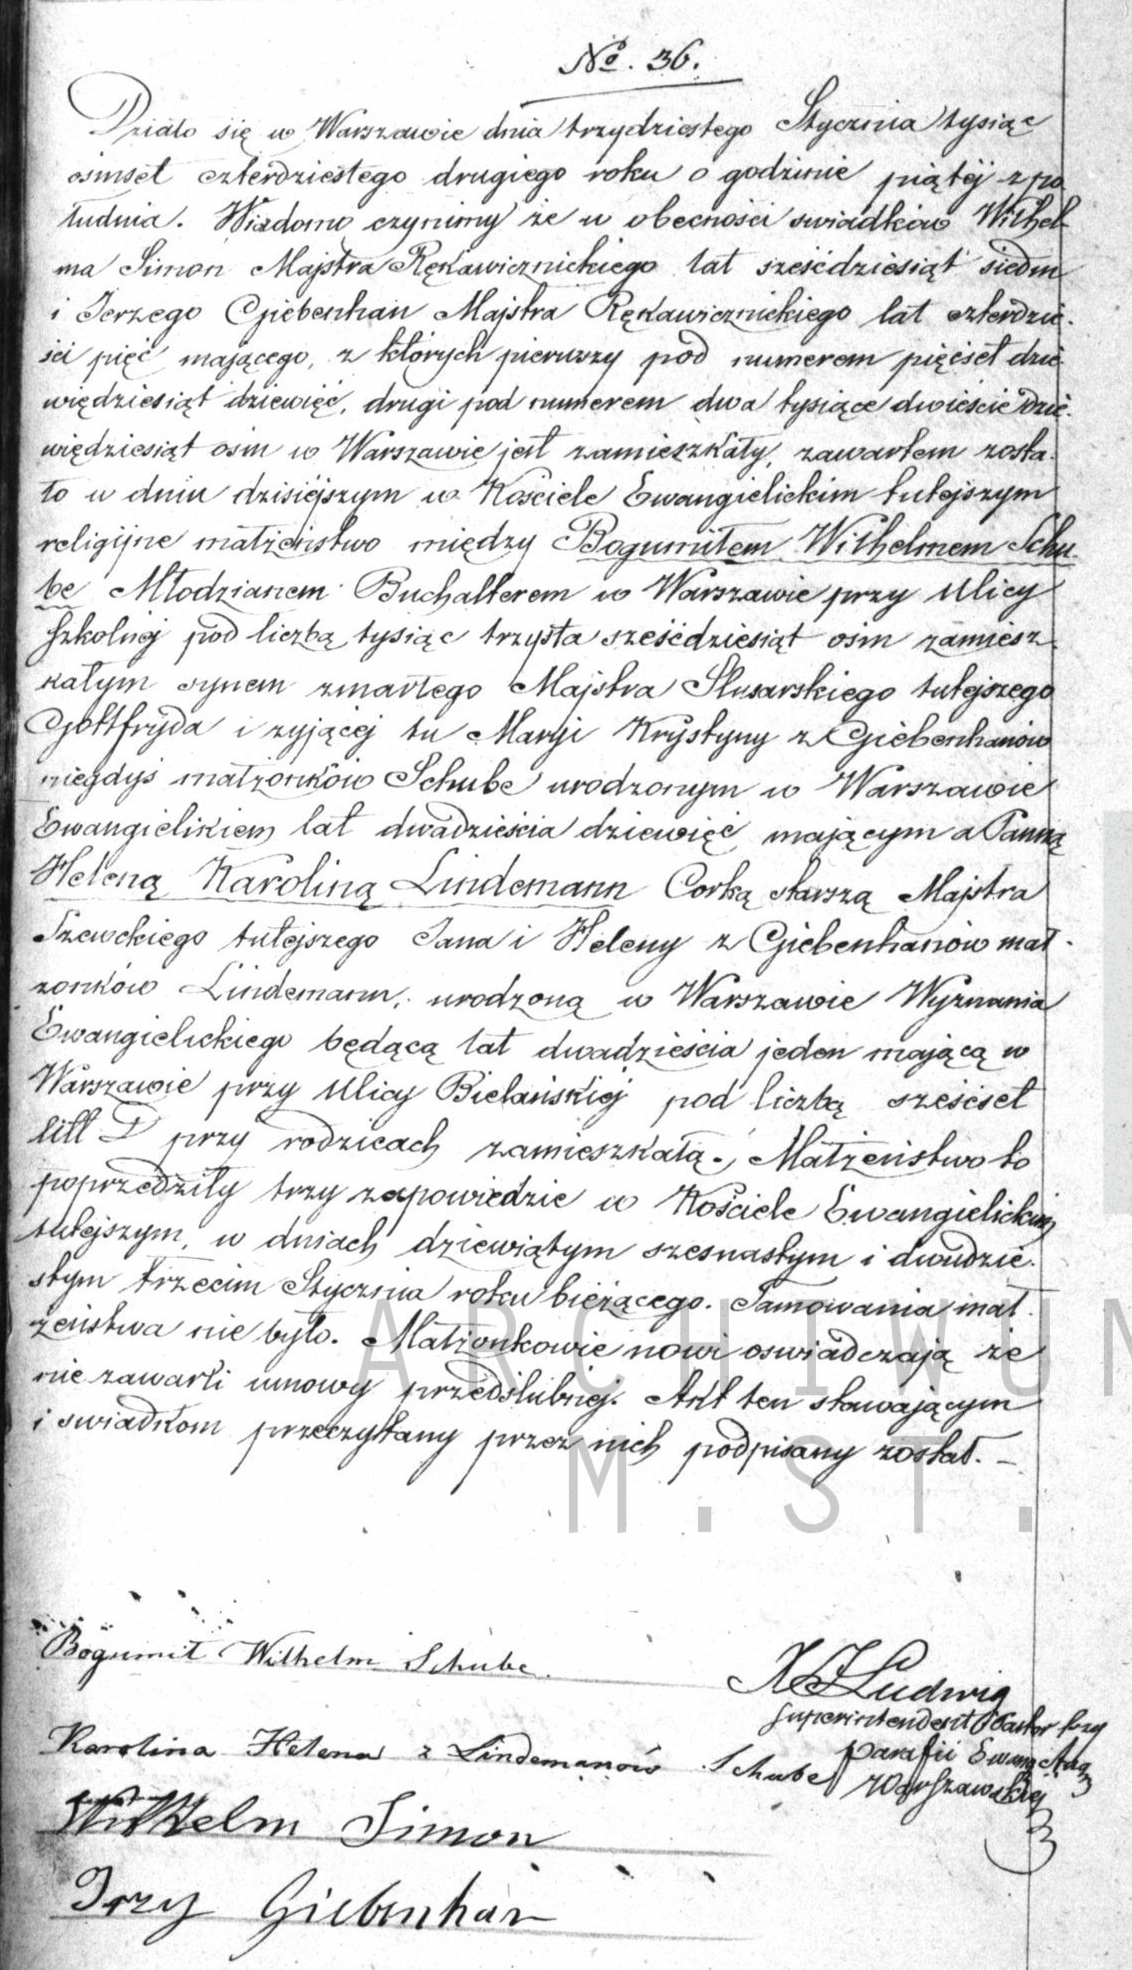 №. 36.
Działo się w Warszawie dnia trzydziestego Stycznia tysiąc
ośmset czterdziestego drugiego roku o godzinie piątej z po
łudnia. Wiadomo czynimy że w obecności swiadków Wilhel-
ma Simon Majstra Rękawicznickiego lat sześćdziesiąt siedm
i Jerzego Giebenhan Majstra Rękawicznickiego lat czterdzie-
ści pięć mającego, z których pierwszy pod numerem pięćset dzie
więdziesiąt dziewięć, drugi pod numerem dwa tysiące dwieście dzie-
więdziesiąt ośm w Warszawie jest zamieszkały, zawartem zosta-
ło w dniu dzisiejszym w Kościele Ewangielickim tutejszym
religijne małżeństwo między Bogumiłem Wilhelmem Schu-
be Młodzianem Buchalterem w Warszawie przy Ulicy
Szkolnej pod liczbą tysiąc trzysta sześćdziesiąt ośm zamiesz-
kałym synem zmarłego Majstra Slusarskiego tutejszego
Gottfryda i żyjącej tu Maryi Krystyny z Giebenhanów
niegdyś małżonków Schube urodzonym w Warszawie
Ewangielikiem lat dwadzieścia dziewięć mającym a Panną
Heleną Karoliną Lindemann Corką starszą Majstra
Szewckiego tutejszego Jana i Heleny z Giebenhanów mał-
żonków Lindemann, urodzoną w Warszawie Wyznania
Ewangielickiego będącą lat dwadzieścia jeden mającą w
Warszawie przy Ulicy Bielańskiej pod liczbą sześćset
litt D przy rodzicach zamieszkałą. Małżeństwo to
poprzedziły trzy zapowiedzie w Kościele Ewangielickim
tutejszym, w dniach dziewiątym szesnastym i dwudzie-
stym trzecim Stycznia roku bieżącego. Tamowania mał-
żeństwa nie było. Małżonkowie nowi oswiadczają że
nie zawarli umowy przedślubnej. Akt ten stawającym
i swiadkom przeczytany przez nich podpisany został. –
Bogumił Wilhelm Schube.
X J Ludwig
Superintendent Pastor przy
parafii Ewang Aug
Warszawskiej
Karolina Helena z Lindemanów Schube
Wilhelm Simon
Jrzy Giebenhan
ARCHIWUM
M.ST.